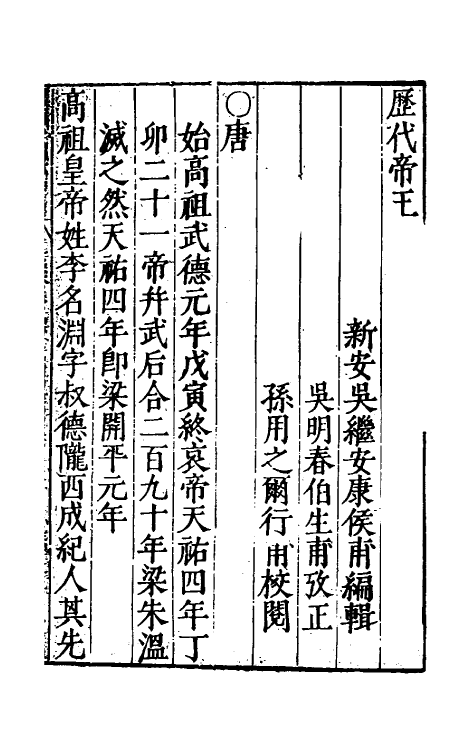 歷代帝王
新安吳繼安康侯甫編輯
吳明春伯生甫攷正
孫用之爾行甫校閱
〇唐
始高祖武德元年戊寅終哀帝天祐四年丁
卯二十一帝幷武后合二百九十年梁朱溫
滅之然天祐四年卽梁開平元年
高祖皇帝姓李名淵字叔德隴西成紀人其先